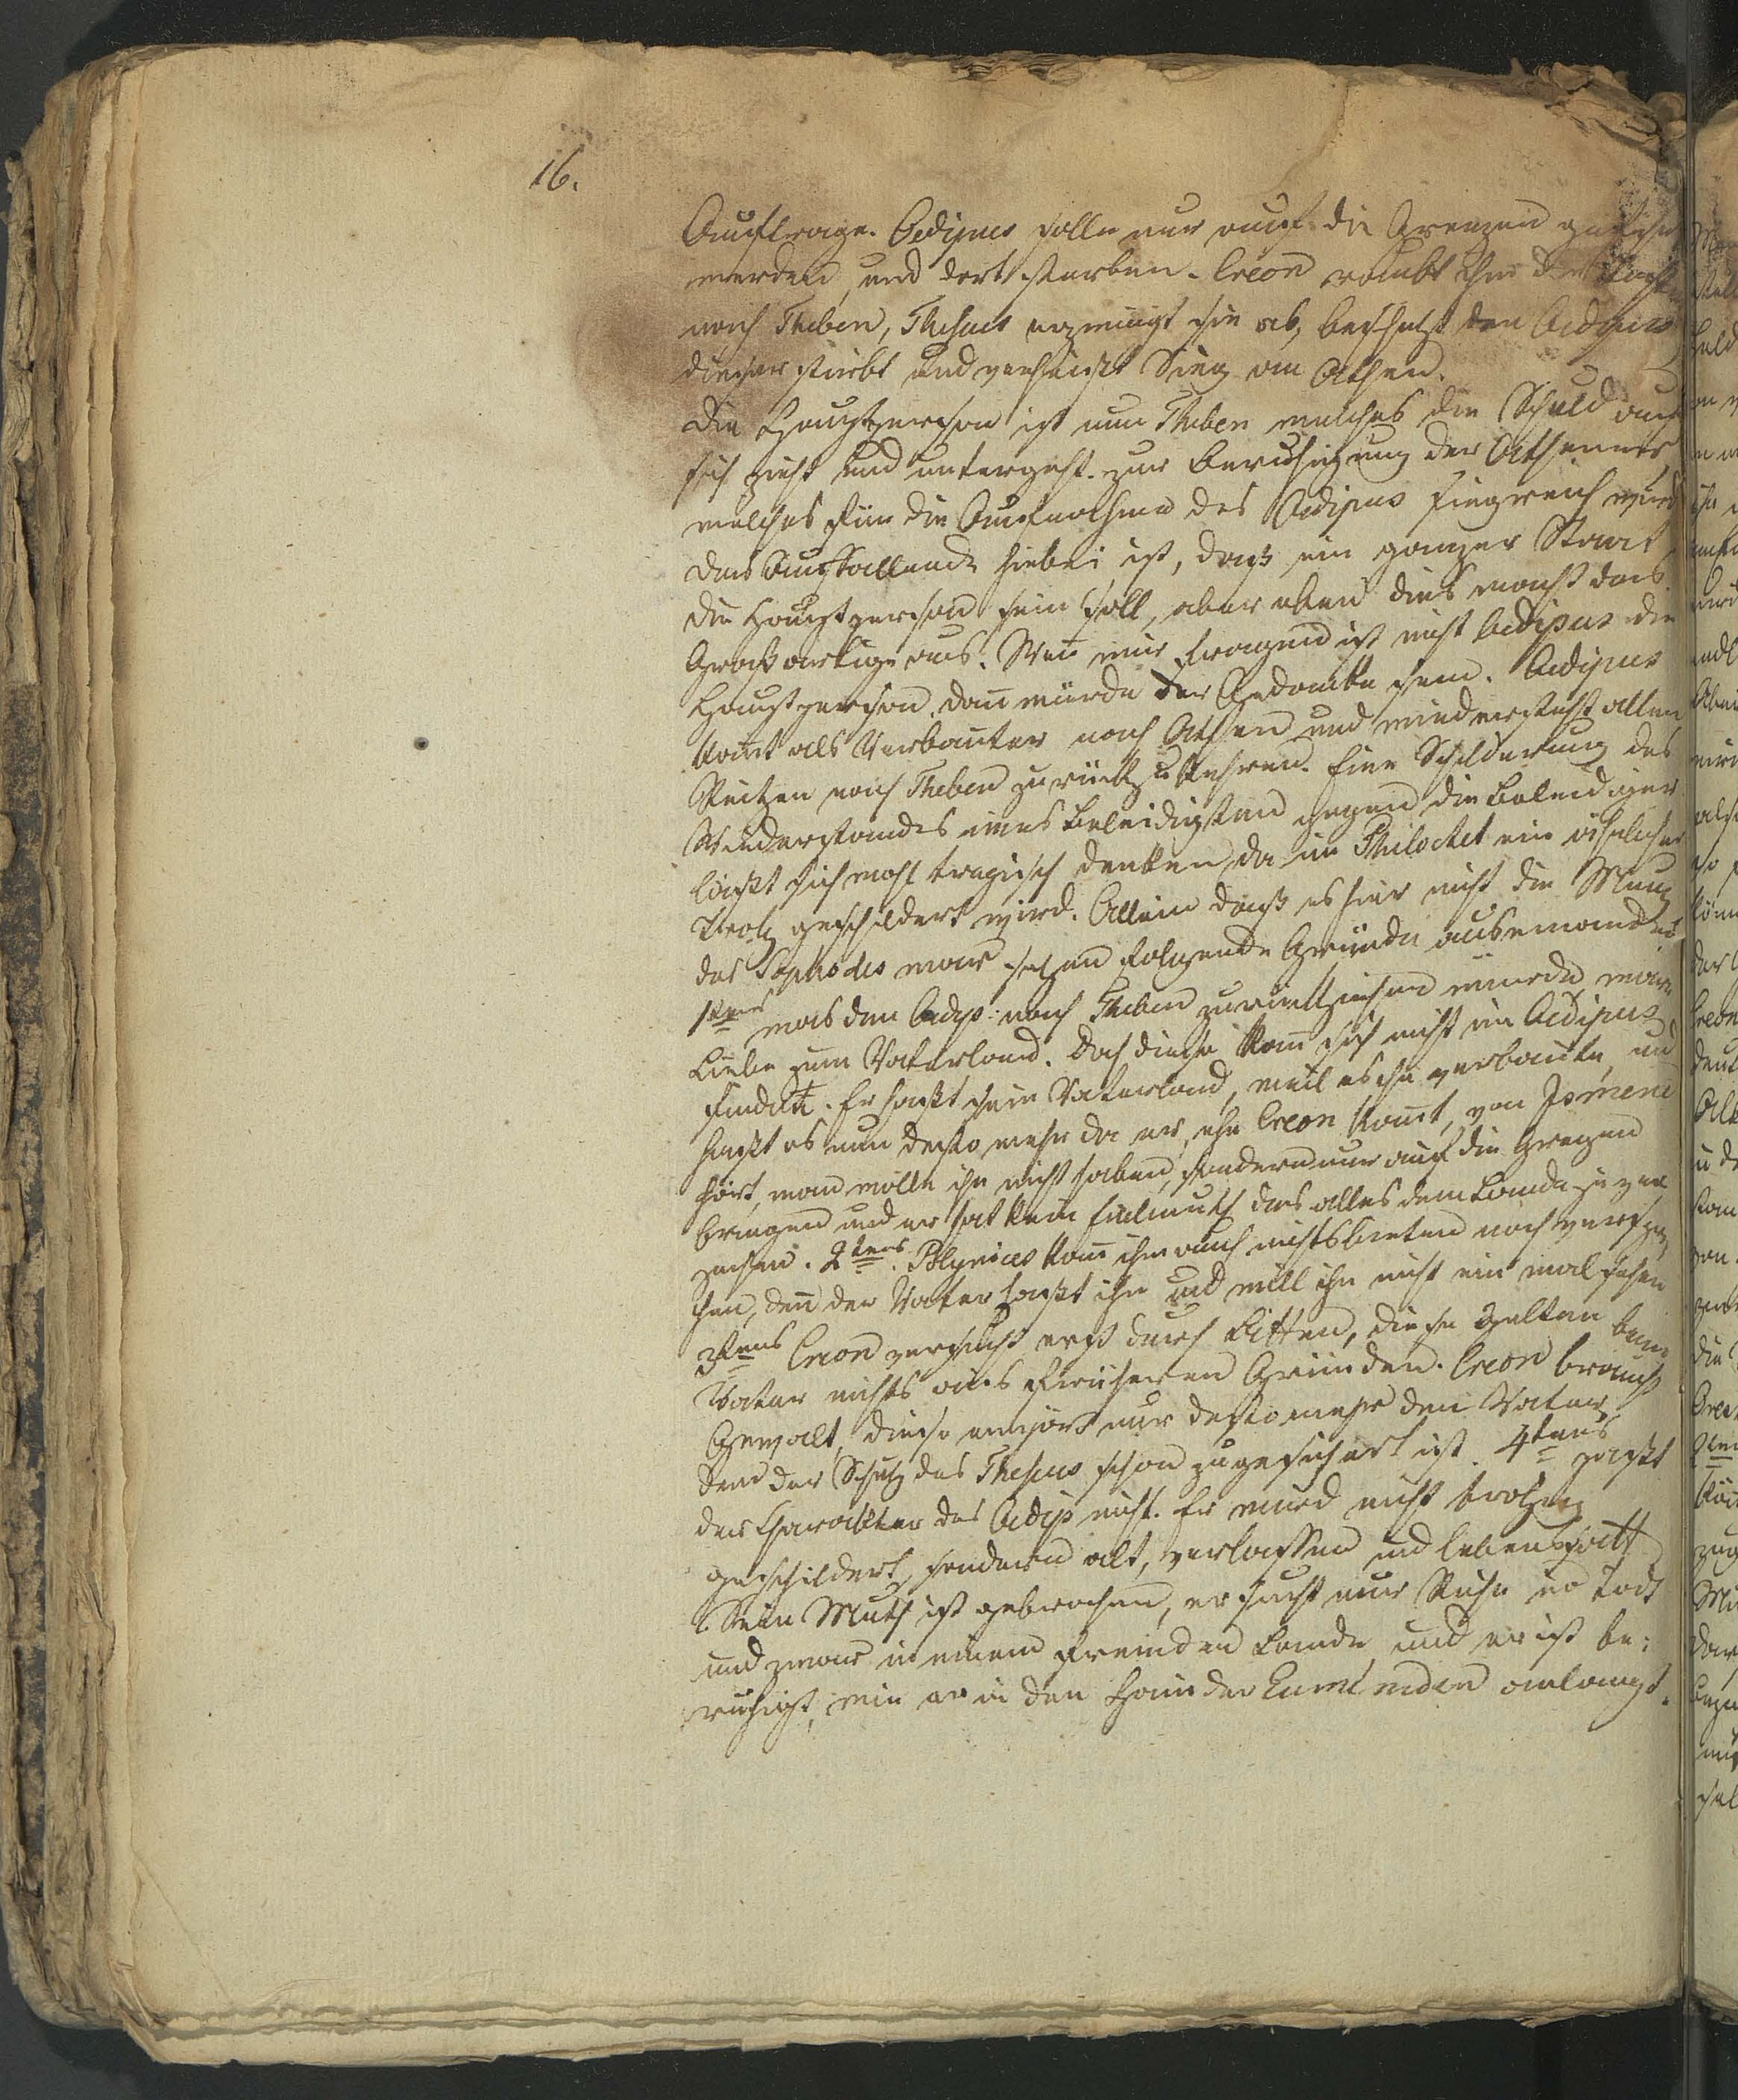 16.
Auftrage. Oedipus solle nur auf die Grenzen geführt
werden, und dort sterben. Creon raubt ihm die Töchter
nach Theben, Theseus erzwingt sie ab, beschützt den Oedipus
dieser stirbt und verheißt Sieg an Athen.
Die Hauptperson ist nun Theben welches die Schuld auf
sich zieht und untergeht. zur Beruhigung der Athener
welches für die Aufnahme des Oedipus siegreich wird
Das Auffallende hiebei ist, daß ein ganzer Staat
die Hauptperson sein soll, aber eben dies macht das
Großartige aus. Wen wir fragend ist nicht Oedipus die
Hauptperson, dan würde der Gedanke sein. Oedipus
komt als Verbanter nach Athen und wiedersteht allen
Reitzen nach Theben zurückzukehren. Eine Schilderung des
Wiederstandes eines Beleidigten gegen die Beleidiger
läßt sich wohl tragisch denken, da im Philoctet ein ähnlicher
Trotz geschildert wird. Allein daß es hier nicht die Meinung
des Sophocles war setzen folgende Gründe auseinander
1tens was den Oedip: nach Theben zurückziehen würde, wäre
Liebe zum Vaterland. Doch diese kan sich nicht im Oedipus
finden. Er haßt sein Vaterland, weil es ihn verbante, und
haßt es nun desto mehr da er, ehe Creon komt, von Ismene
hört, man wolle ihn nicht haben, sondern nur auf die Grenzen
bringen und er hat kein Edelmuth das alles dem Lande zu ver
zeihen. 2tens. Polynices kan ihm auch nichts bieten noch verspre
chen, den der Vater haßt ihn und will ihn nicht ein mal sehen
3tens Creon versucht erst durch Bitten, diese gelten beim
Vater nichts aus früheren Gründen. Creon braucht
Gewalt, diese empört nur desto mehr den Vater,
dem der Schutz des Theseus schon zugesichert ist. 4tens paßt
der Charakter des Oedip nicht. Er wird nicht trotzig
geschildert, sondern alt, verlassen und lebenssatt
Sein Muth ist gebrochen, er sucht nur Ruhe im Tod
und zwar in einem fremden Lande und er ist be:
ruhigt, wie er in den Hain der Eumeniden anlangt.